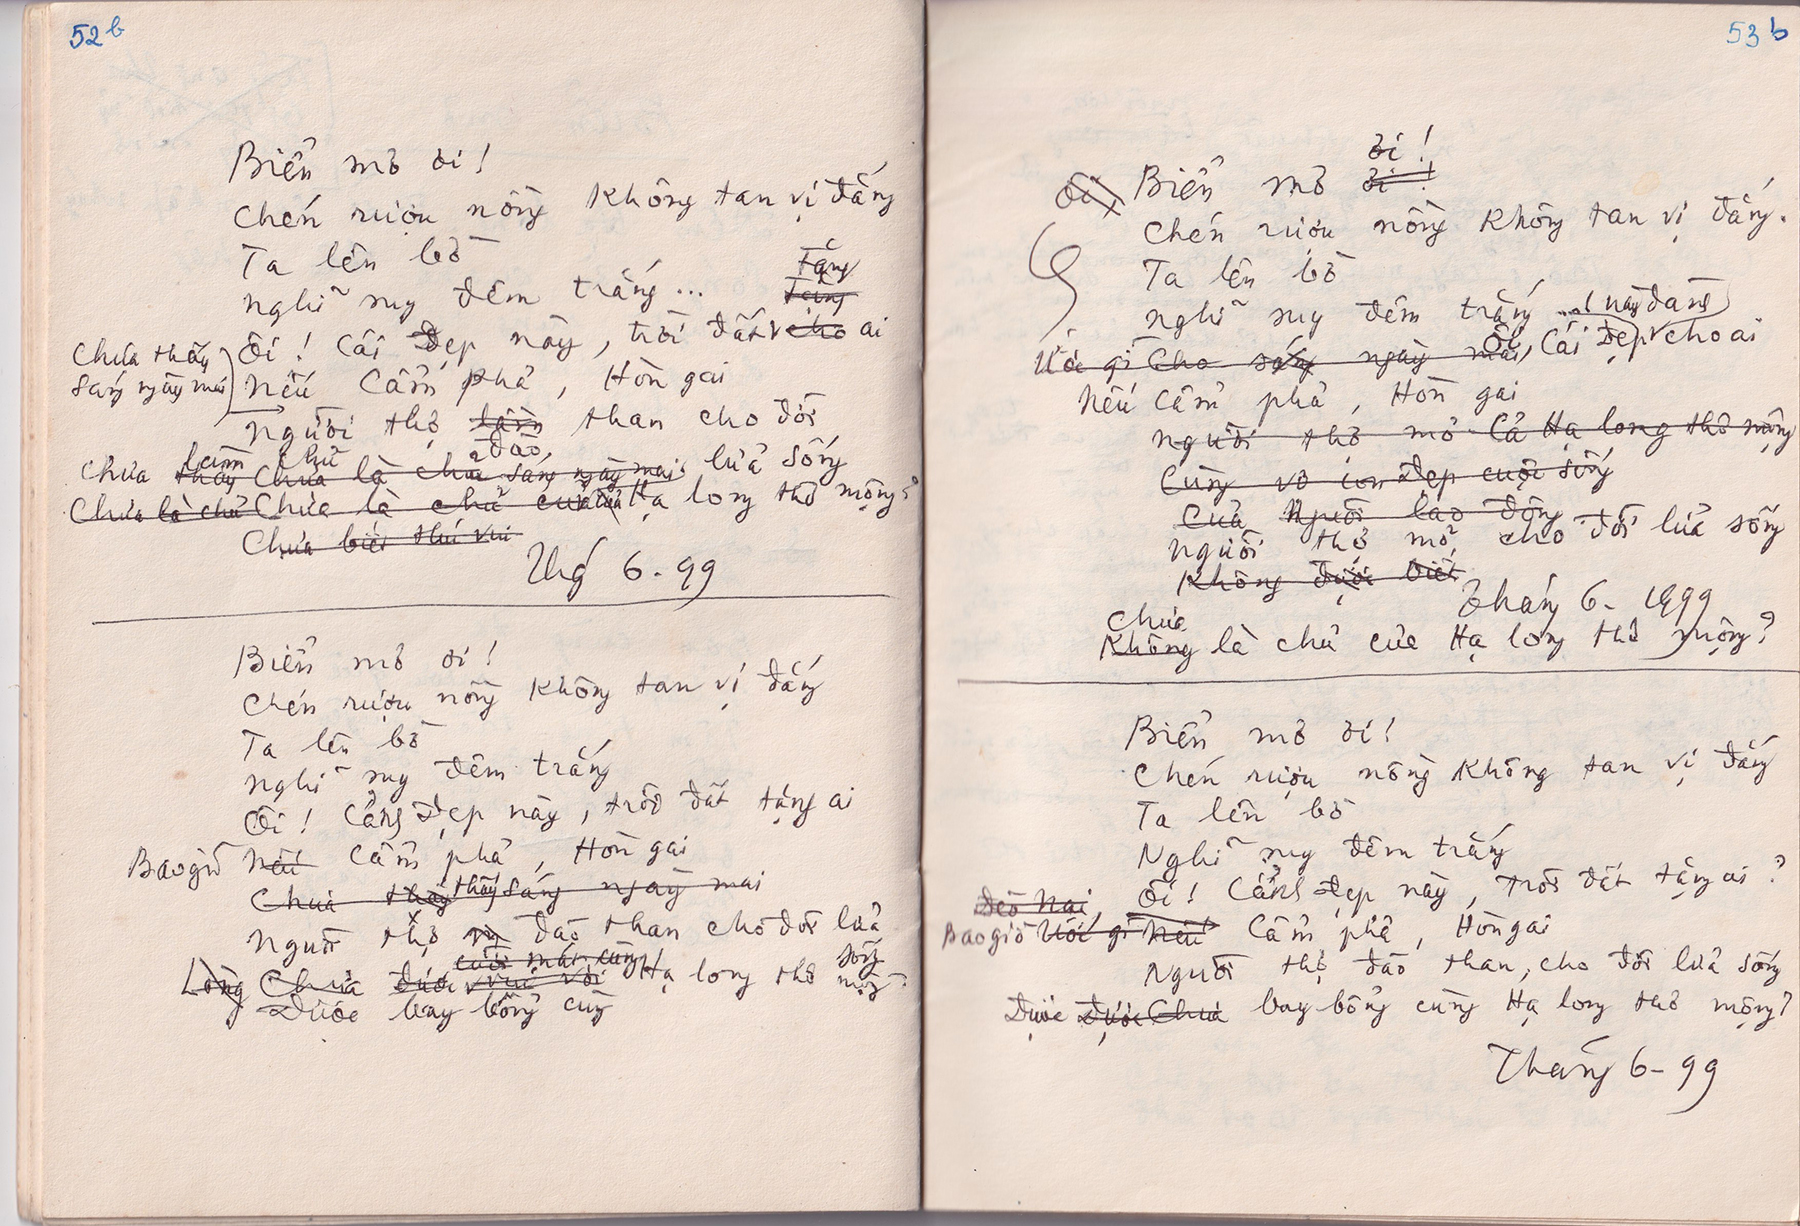 52b
Biển mơ ơi!
Chén rượu nồng không tan vị đắng
Ta lên bờ
Nghĩ suy đêm trắng...
Tặng
Ôi! Cái đẹp này, trời đất cho ai
Chưa thấy
sáng ngày mai
Nếu Cẩm phả, Hòn gai
Người thợ than cho đời
đào
làm chủ
Chưa thấy Chưa là chủ sáng ngày mai lửa sống
Chưa là chủ Chưa là chủ của Hạ long thơ mộng?
Chưa biết thú vui
Thg 6-99
Biển mơ ơi!
Chén rượu nồng không tan vị đắng
Ta lên bờ
Nghĩ suy đêm trắng
Ôi! Cảnh đẹp này, trời đất tặng ai
Bao giờ Nếu Cẩm phả, Hòn gai
Chưa thấy thấy sáng ngày mai
Người thợ đào than cho đời lửa
sống
Lòng Chưa được vui với Hạ long thơ mộng?
Được bay bổng cùng
53b
ơi!
Ôi, Biển mơ ơi!
Chén rượu nồng không tan vị đắng.
Ta lên bờ
Nghĩ suy đêm trắng...
Ước gì cho sáng ngày mai, Ôi, Cái đẹp cho ai
Nếu Cẩm phả, Hòn gai
Người thợ mỏ Cả Hạ long thơ mộng
Cùng vợ con đẹp cuộc sống
Của Người lao động
Người thợ mỏ cho đời lửa sống
Không được biết
Tháng 6-1999
Chưa
Không là chủ của Hạ long thơ mộng?
Biển mơ ơi!
Chén rượu nồng không tan vị đắng
Ta lên bờ
Nghĩ suy đêm trắng
Ôi! Cảnh đẹp này, trời đất tặng ai?
Đèo Nai
Bao giờ Ước gì Nếu Cẩm phả, Hòn gai
Người thợ đào than, cho đời lửa sống
Được Được Chưa bay bổng cùng Hạ long thơ mộng?
Tháng 6-99